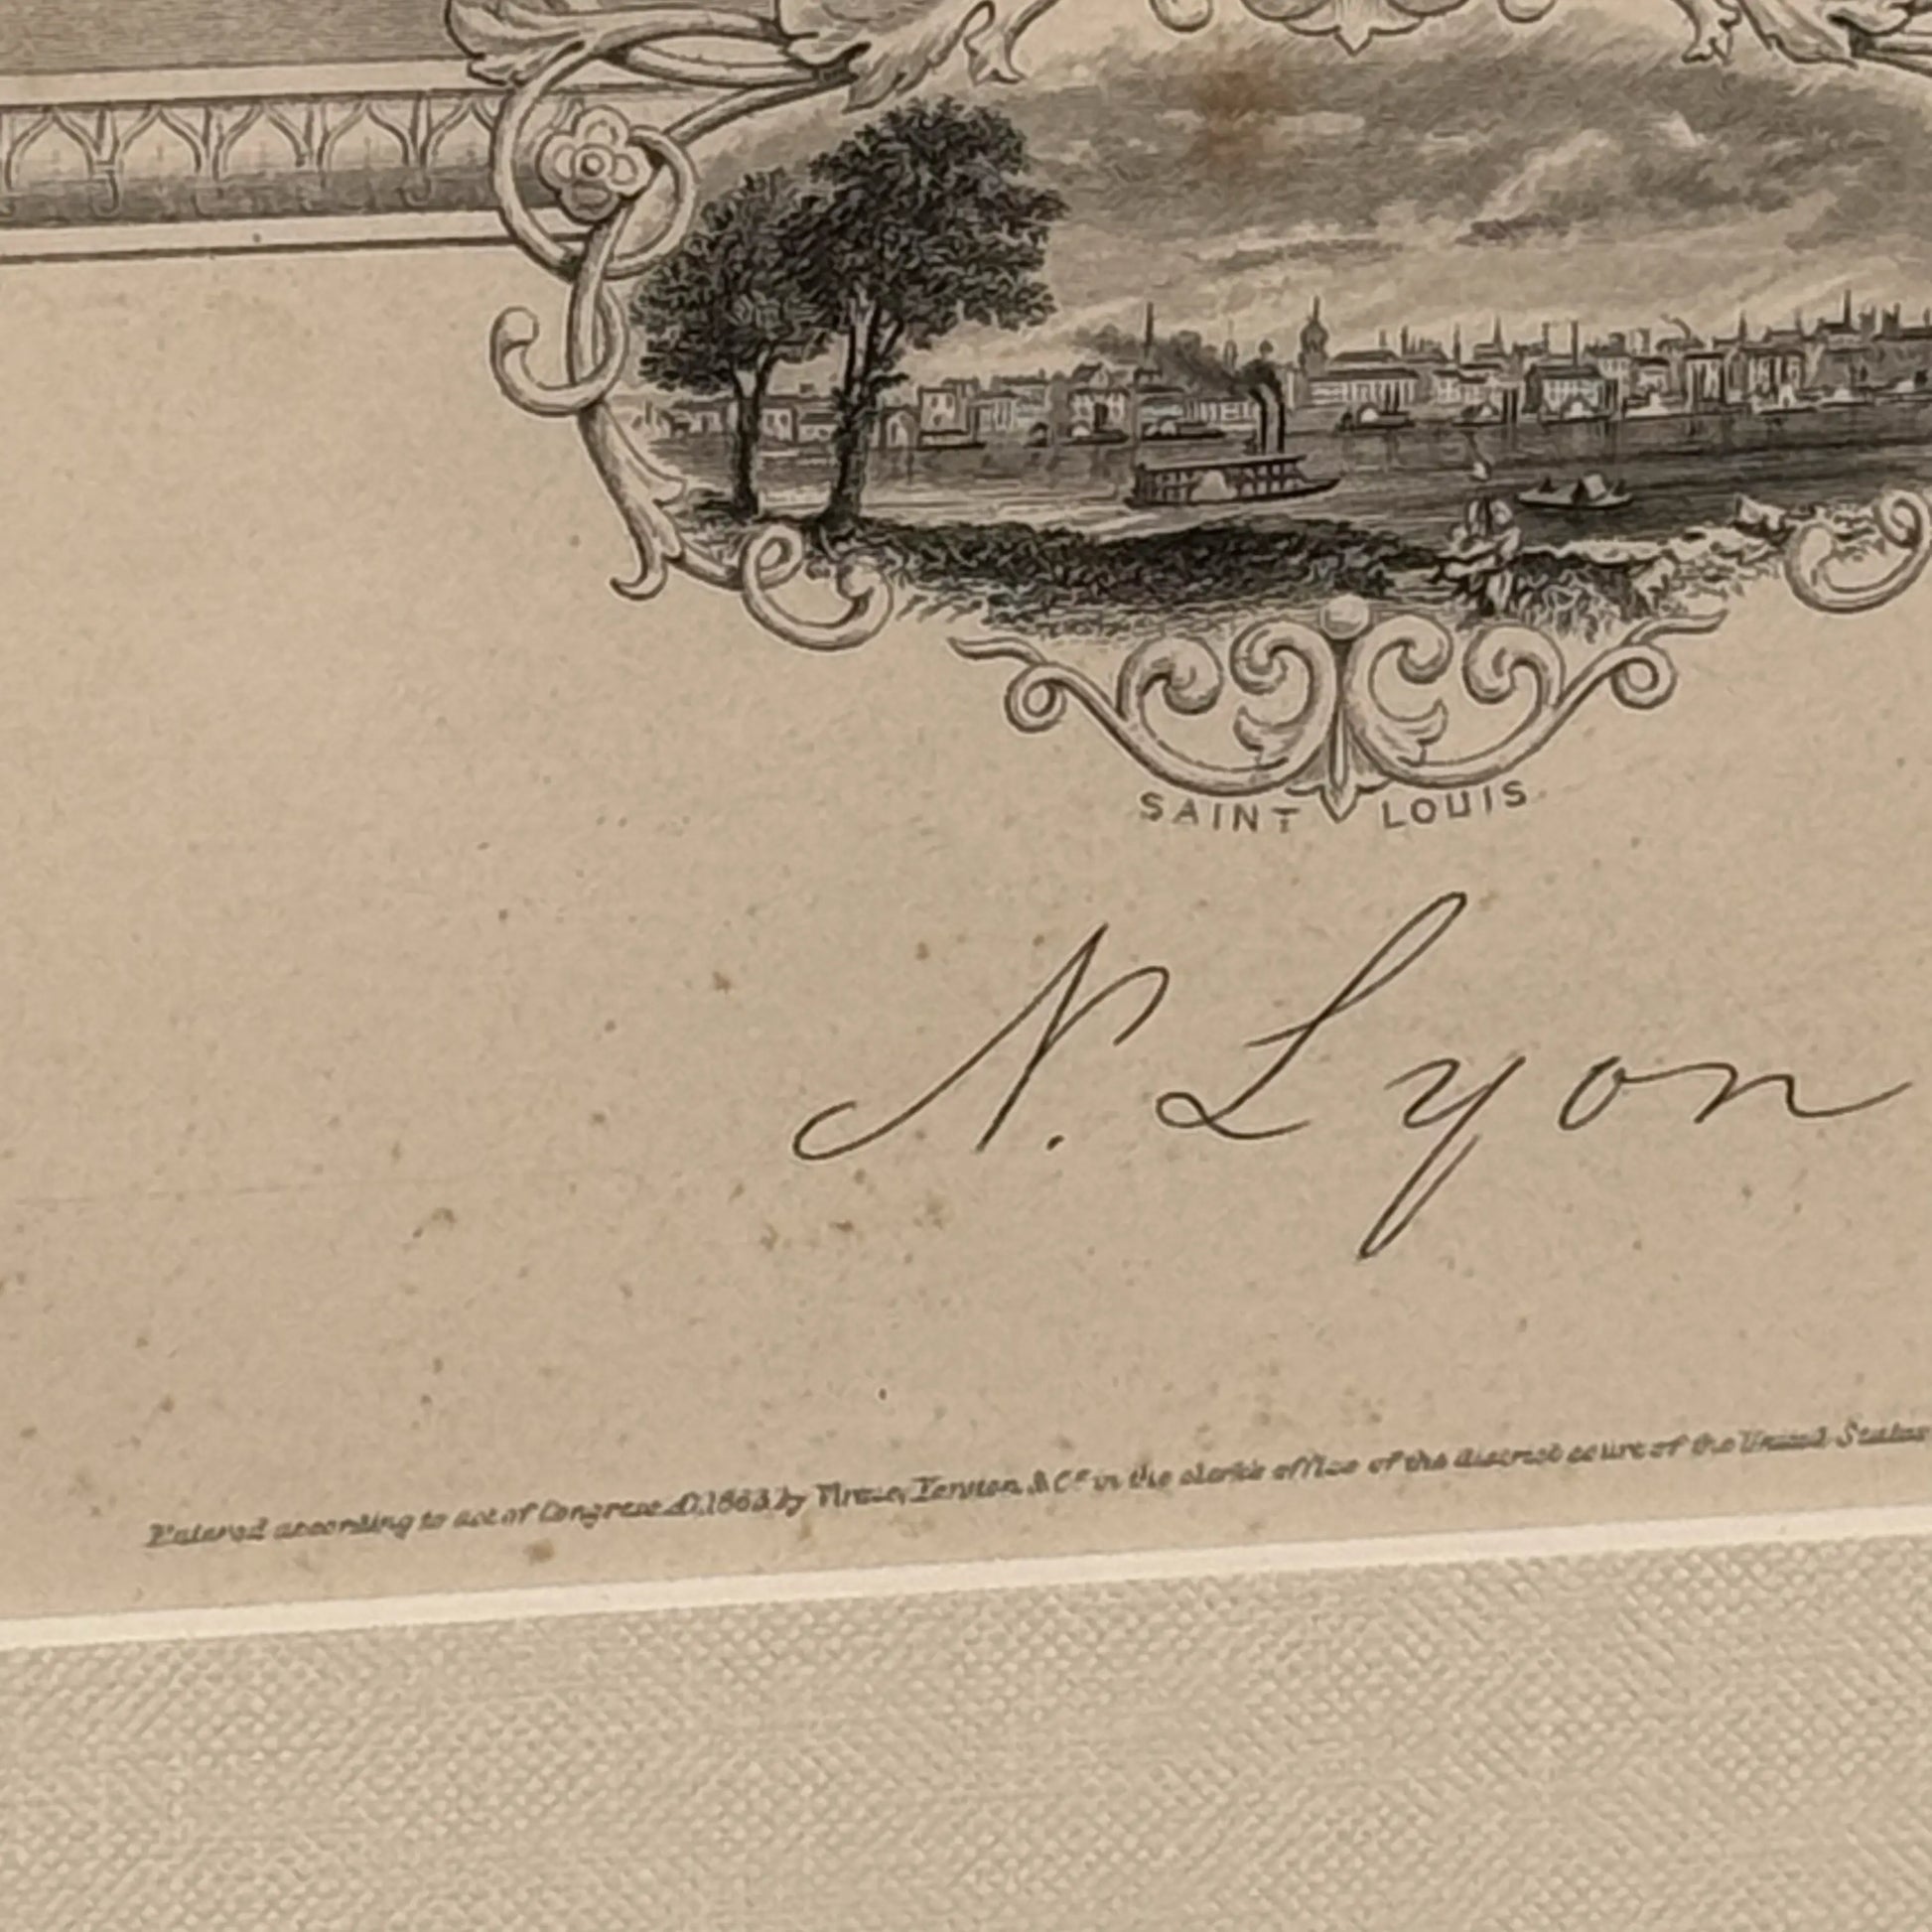 SAINT LOUIS
N. Lyon
Entered according to act of Congress AD, 1863 by Virtue, Yorston, & Co in the clerk's office of the district court of the United States